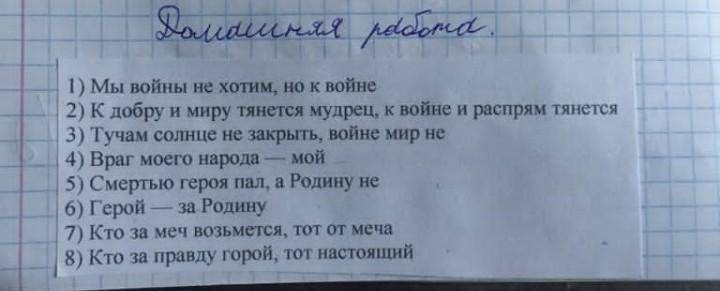 Домашняя работа.
1) Мы войны не хотим, но к войне
2) К добру и миру тянется мудрец, к войне и распрям тянется
3) Тучам солнце не закрыть, войне мир не
4) Враг моего народа — мой
5) Смертью героя пал, а Родину не
6) Герой — за Родину
7) Кто за меч возьмется, тот от меча
8) Кто за правду горой, тот настоящий